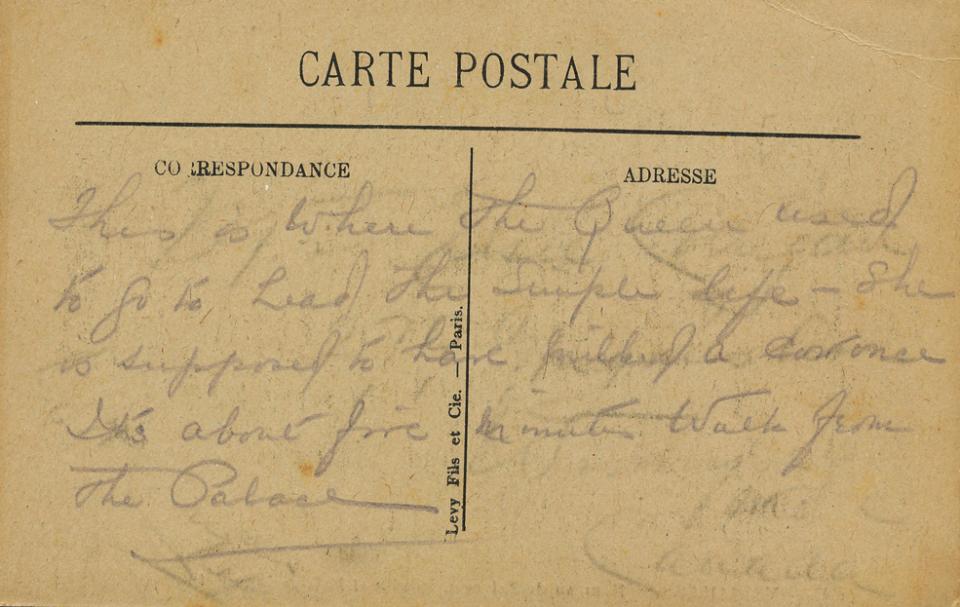 CARTE POSTALE
CORRESPONDANCE
ADRESSE
This is where the Queen used
to go to Lead the simple life - She
is supposed to have milked a cow once
Its about five minutes walk from
the Palace
Levy Fils et Cie. — Paris.